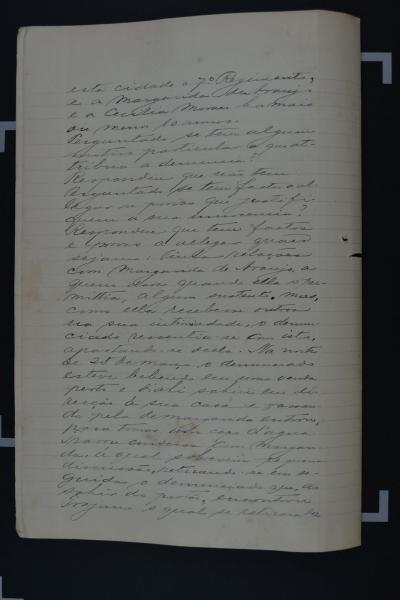 esta cidade o 7º Regimento,
e a Margarida de Araujo
e a Cecilia Moraes ha mais
ou menos 10 annos.
Perguntado se tem algum
motivo particular a que at-
tribua a denuncia?
Respondeu que não tem
Perguntado se tem factos a al-
legar ou provas que justifi-
quem a sua innocencia?
Respondeu que tem factos
e provas a allegar quaes
sejam: Tinha relações
com Margarida de Araujo, a
quem dava quando ella o per-
mittia, algum sustento. Mas,
como ella recebesse outros
na sua intimidade, o denun-
ciado resentiu-se com isto,
apartando-se della. Na noite
de 21 de março o denunciado
esteve bebendo em uma venda
perto e dali sahiu em di-
recção a sua casa e passan-
do pela de Margarida entrou,
para tomar um copo d'agua.
com Margari-
da, a qual
discussão, retirando-se em se-
guida o denunciado que, ao
sahir da porta, encontrou
Trajano o qual se retirava